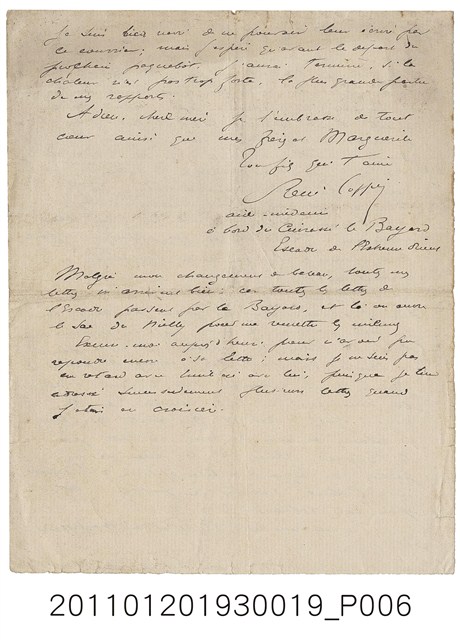 Je suis bien navré de ne pouvoir leur écrire par
ce courrier; mais j'espère qu'avant le départ du
prochain paquebot, j'aurai terminé, si la
chaleur n'est pas trop forte, la plus grande partie
de mes rapports.
Adieu, chère mère je t'embrasse de tout
cœur ainsi que mes frères et Marguerite
Ton fils qui t'aime
René Coppin
aide-médecin
à bord du Cuirassé le Bayard
Escadre de l'Extrême Orient
Malgré mon changement de bateau, toutes mes
lettres m'arrivent bien: car toutes les lettres de
l'Escadre passent par le Bayard, et là on ouvre
le sac du pour me remettre les miennes
Excuse-moi aujourd'hui pour n'avoir pu
répondre encore à sa lettre; mais je ne suis pas
en retard avec lui, puisque je lui
ai adressé plusieurs lettres quand
j'étais en croisière.